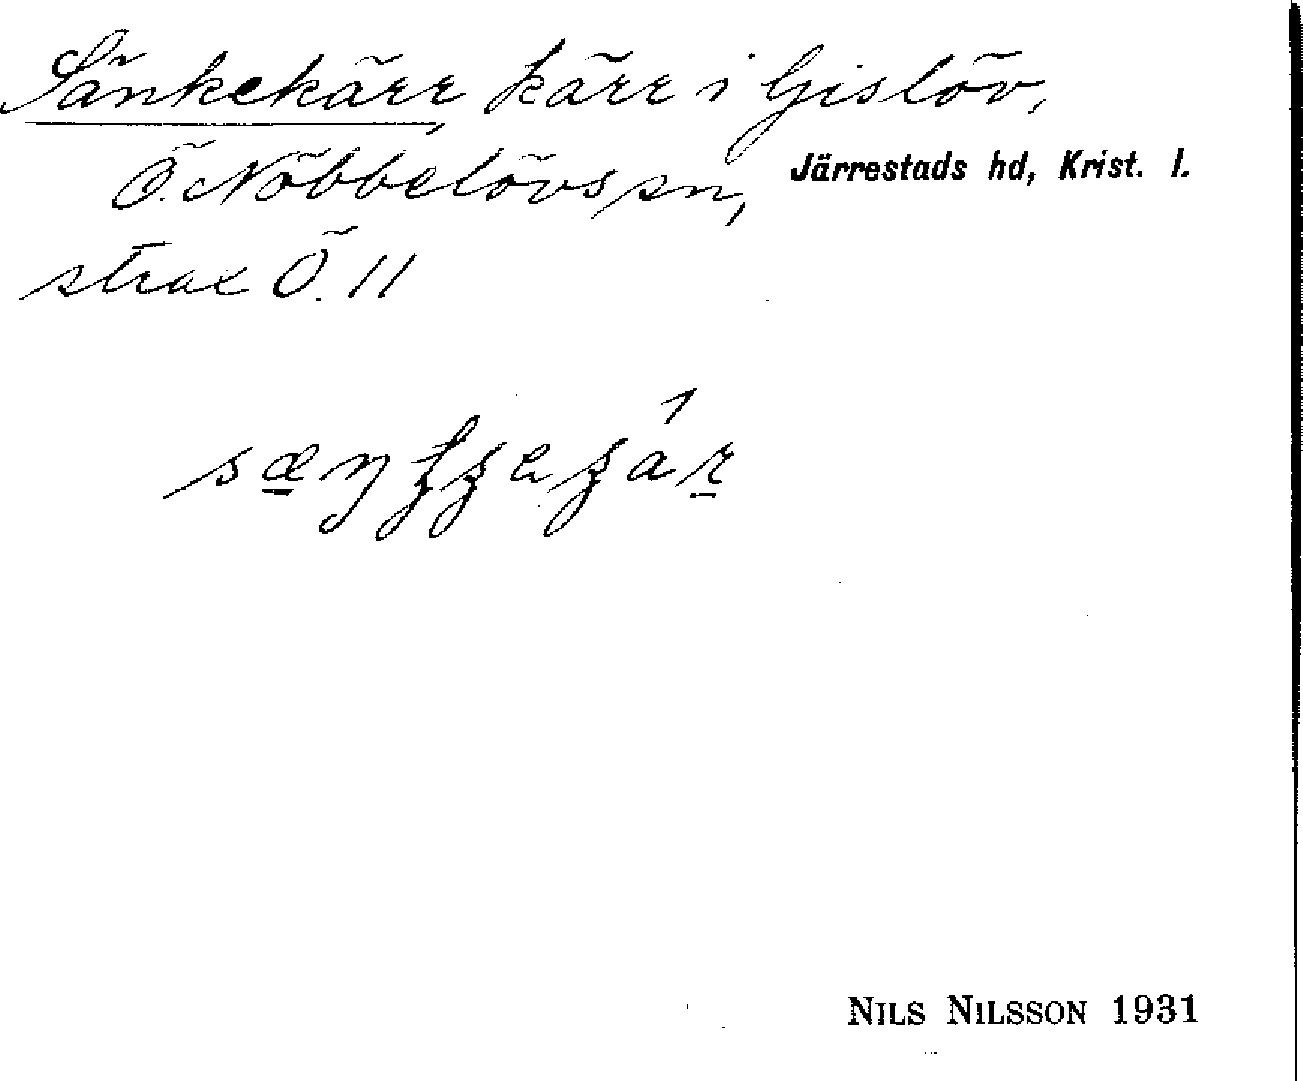 Sänkekärr, kärr i Gislöv,
Ö. Nöbbelövs sn, Järrestads hd, Krist. l.
strax Ö. 11
NILS NILSSON 1931